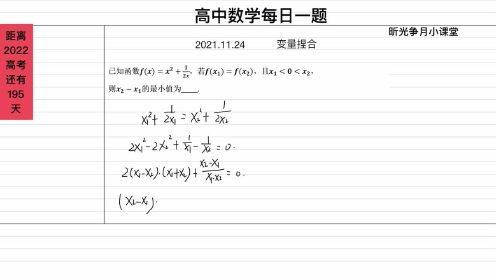 高中数学每日一题
昕光争月小课堂
距离
2022
高考
还有
195
天
2021.11.24 变量捏合
已知函数f(x) = x² + 1/2x，若f(x₁) = f(x₂)，且x₁ < 0 < x₂，
则x₂ − x₁的最小值为____.
x₁² + 1/2x₁ = x₂² + 1/2x₂
2x₁² − 2x₂² + 1/x₁ − 1/x₂ = 0.
2(x₁−x₂)·(x₁+x₂) + (x₂−x₁)/(x₁·x₂) = 0.
(x₂−x₁)·